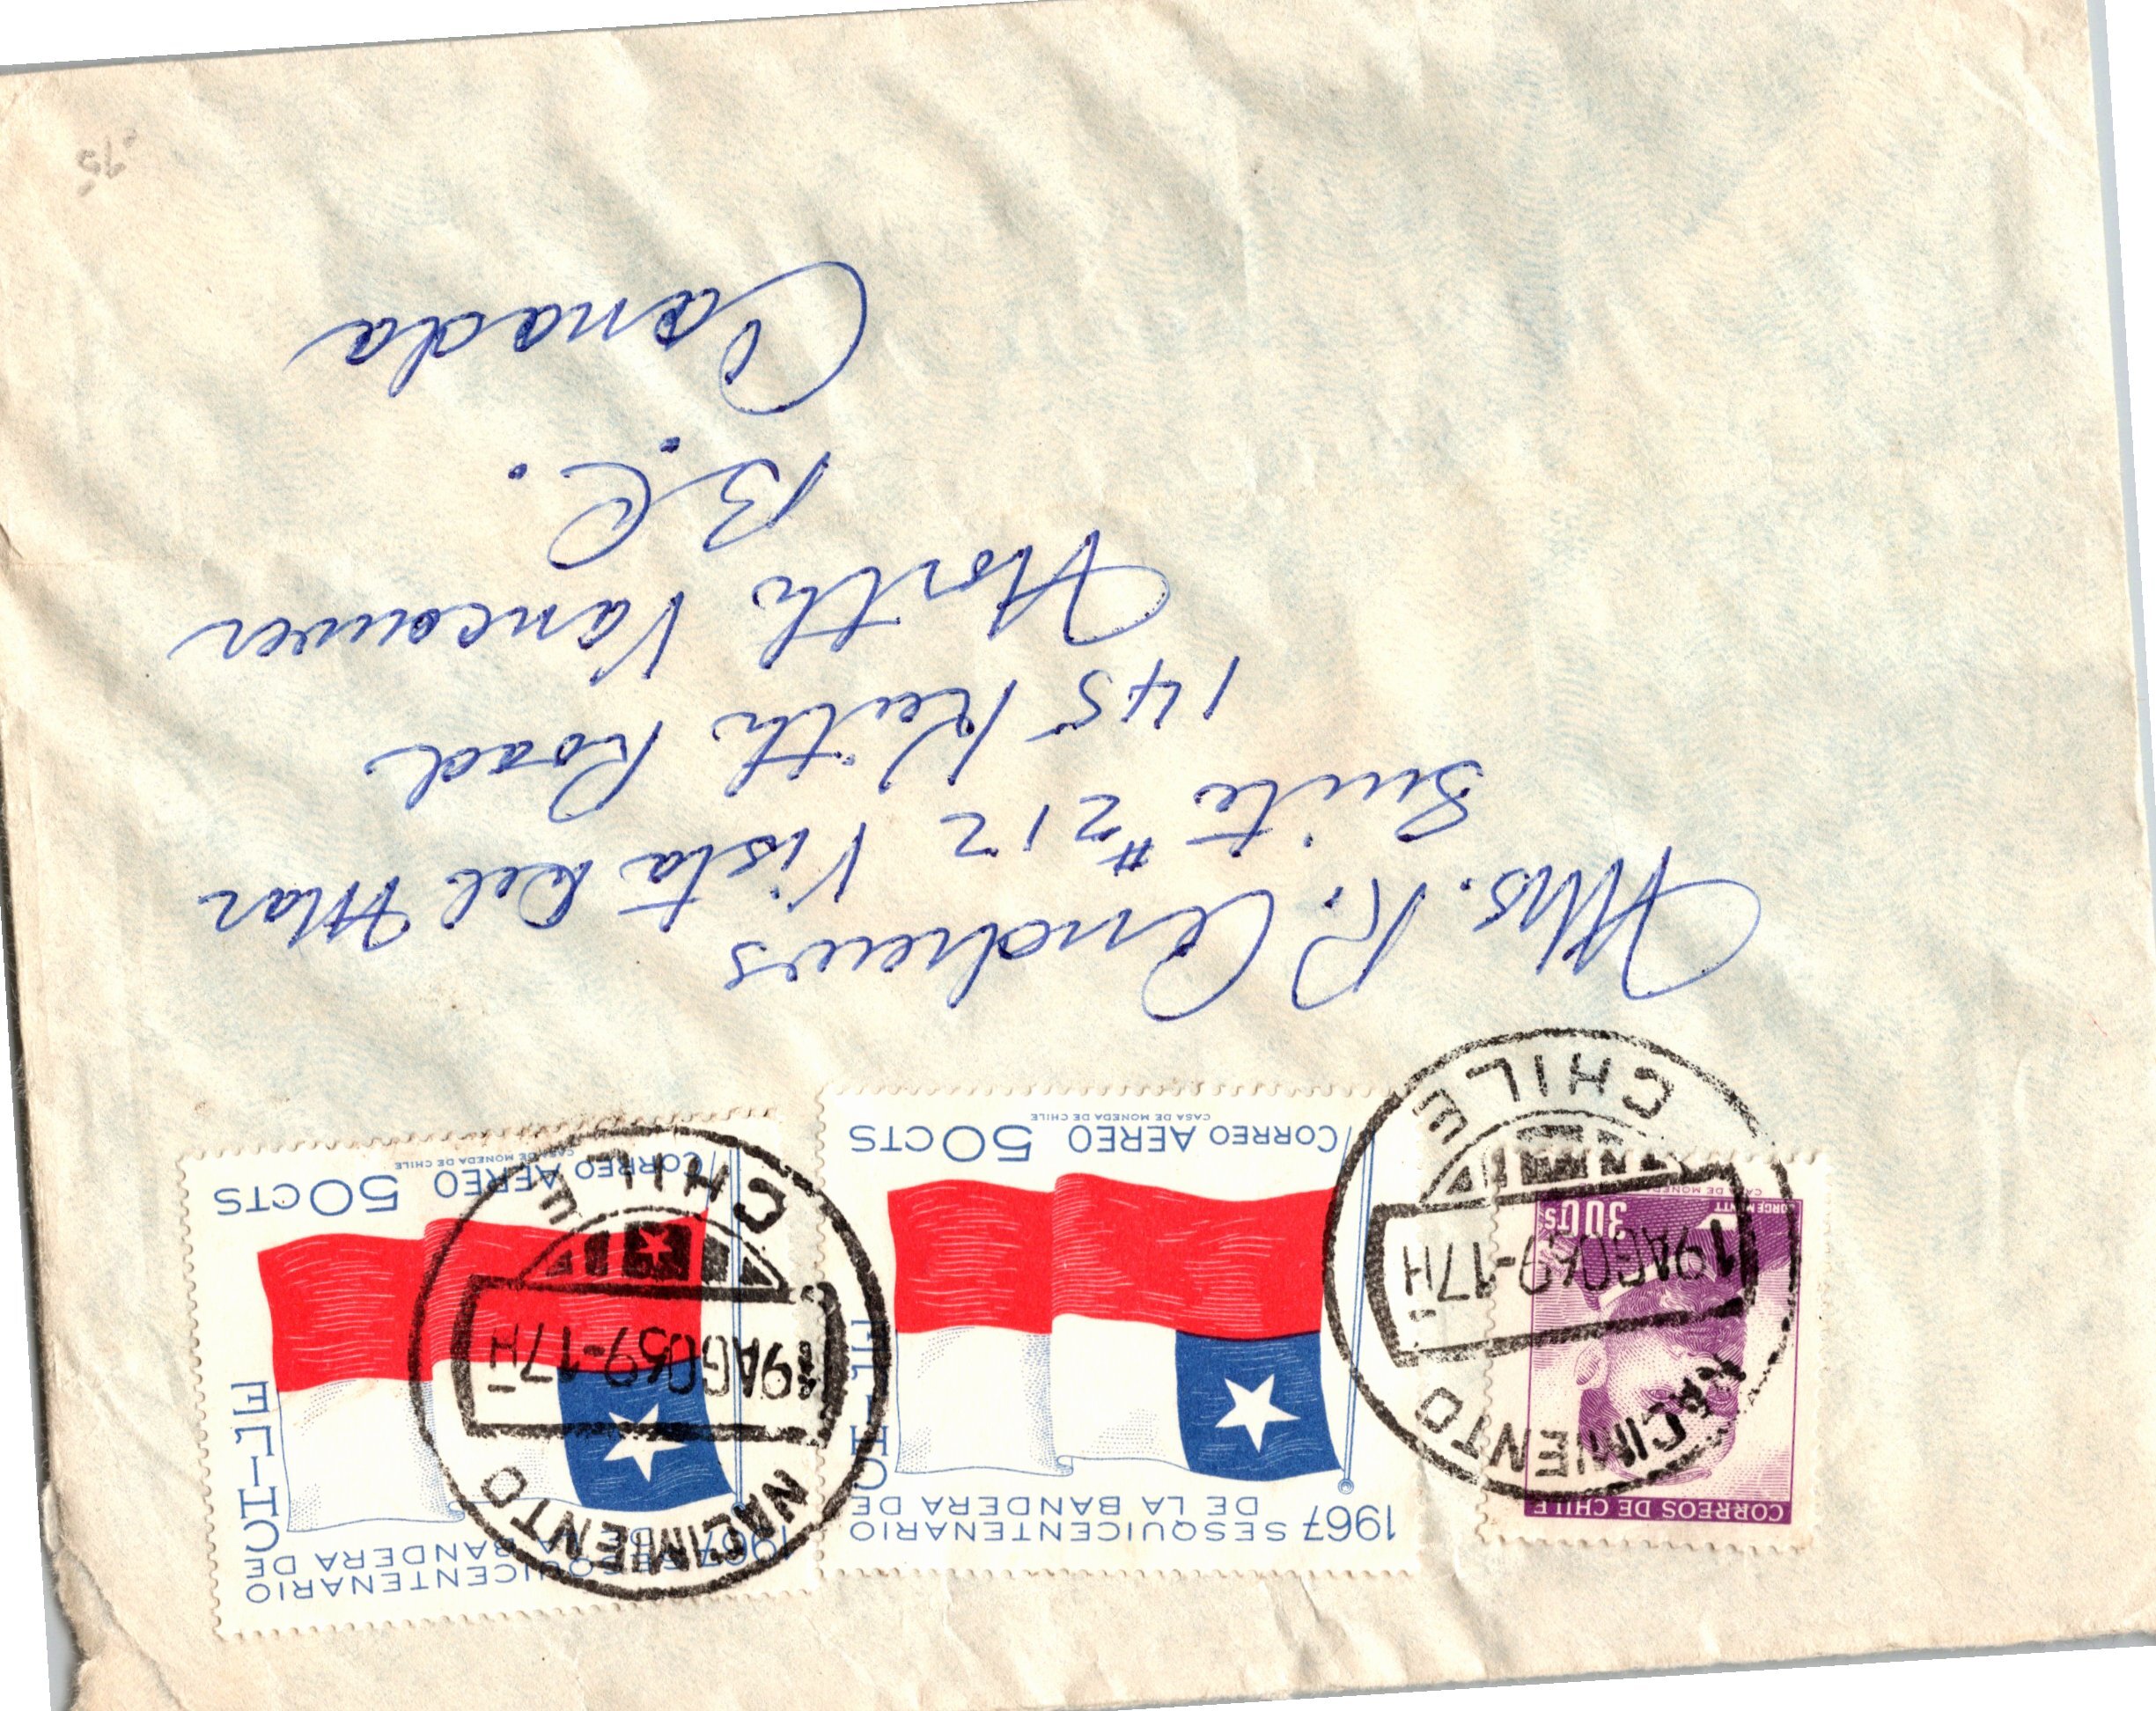 CORREOS DE CHILE
JORGE MONTT
30 CTS
CASA DE MONEDA
1967 SESQUICENTENARIO
DE LA BANDERA DE
CHILE
CORREO AEREO 50 CTS
CASA DE MONEDA DE CHILE
1967 SESQUICENTENARIO
DE LA BANDERA DE
CHILE
CORREO AEREO 50 CTS
CASA DE MONEDA DE CHILE
NACIMIENTO
19AGO69-17H
CHILE
NACIMIENTO
19AGO69-17H
CHILE
Mrs. R. Andrews
Suite #212 Vista Del Mar
145 Keith Road
North Vancouver
B.C.
Canada
.95